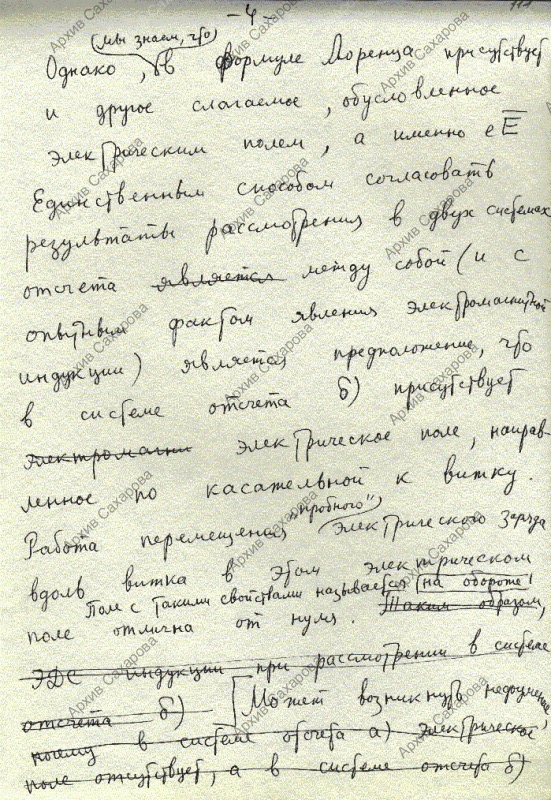 – 4 –
(мы знаем, что)
Однако, в формуле Лоренца присутствует
и другое слагаемое, обусловленное
электрическим полем, а именно eE̅
Единственным способом согласовать
результаты рассмотрения в двух системах
отсчета является между собой (и с
опытным фактом явления электромагнитной
индукции) является предположение, что
в системе отсчета б) присутствует
электромагни электрическое поле, направ-
ленное по касательной к витку.
"пробного"
Работа перемещения электрического заряда
вдоль витка в этом электрическом
Поле с такими свойствами называется на обороте!
поле отлична от нуля. Таким образом,
ЭДС индукции при рассмотрении в системе
отсчета б) [Может возникнуть недоумение,
почему в системе отсчета а) электрическое
поле отсутствует, а в системе отсчета б)
Архив Сахарова